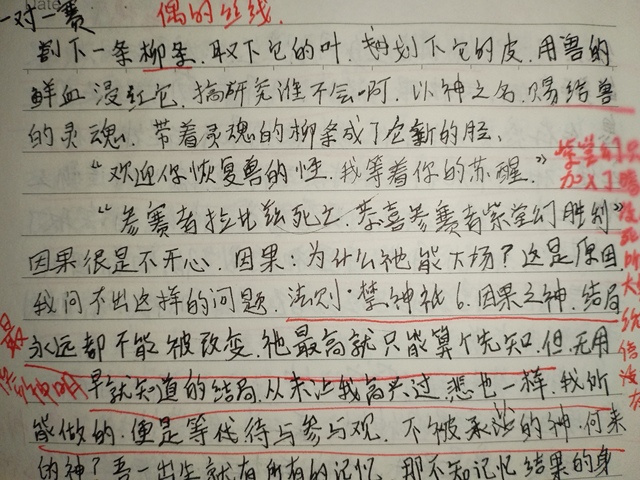 一对一赛
偶的丝线.
割下一条柳条.取下它的叶.划下它的皮.用兽的
鲜血浸红它.搞研究谁不会啊.以神之名.赐结兽
的灵魂.带着灵魂的柳条成了它新的胫.
“欢迎你恢复兽的怪.我等着你的苏醒.”
“参赛者拉比兹死亡.恭喜参赛者紫堂幻胜利”
因果很是不开心.因果:为什么祂能大场?这是原因
我问不出这样的问题.法则·禁神祗6.因果之神.结局
永远都不能被改变.祂最高就只能算个先知.但.无用
早就知道的结局.从未让我高兴过.悲也一样.我所
能做的.便是等代待与参与观.不被承认的神.何来
的神?吾一出生就有所有的记忆.那不知记忆结果的身
紫堂幻
加X了
最
神明